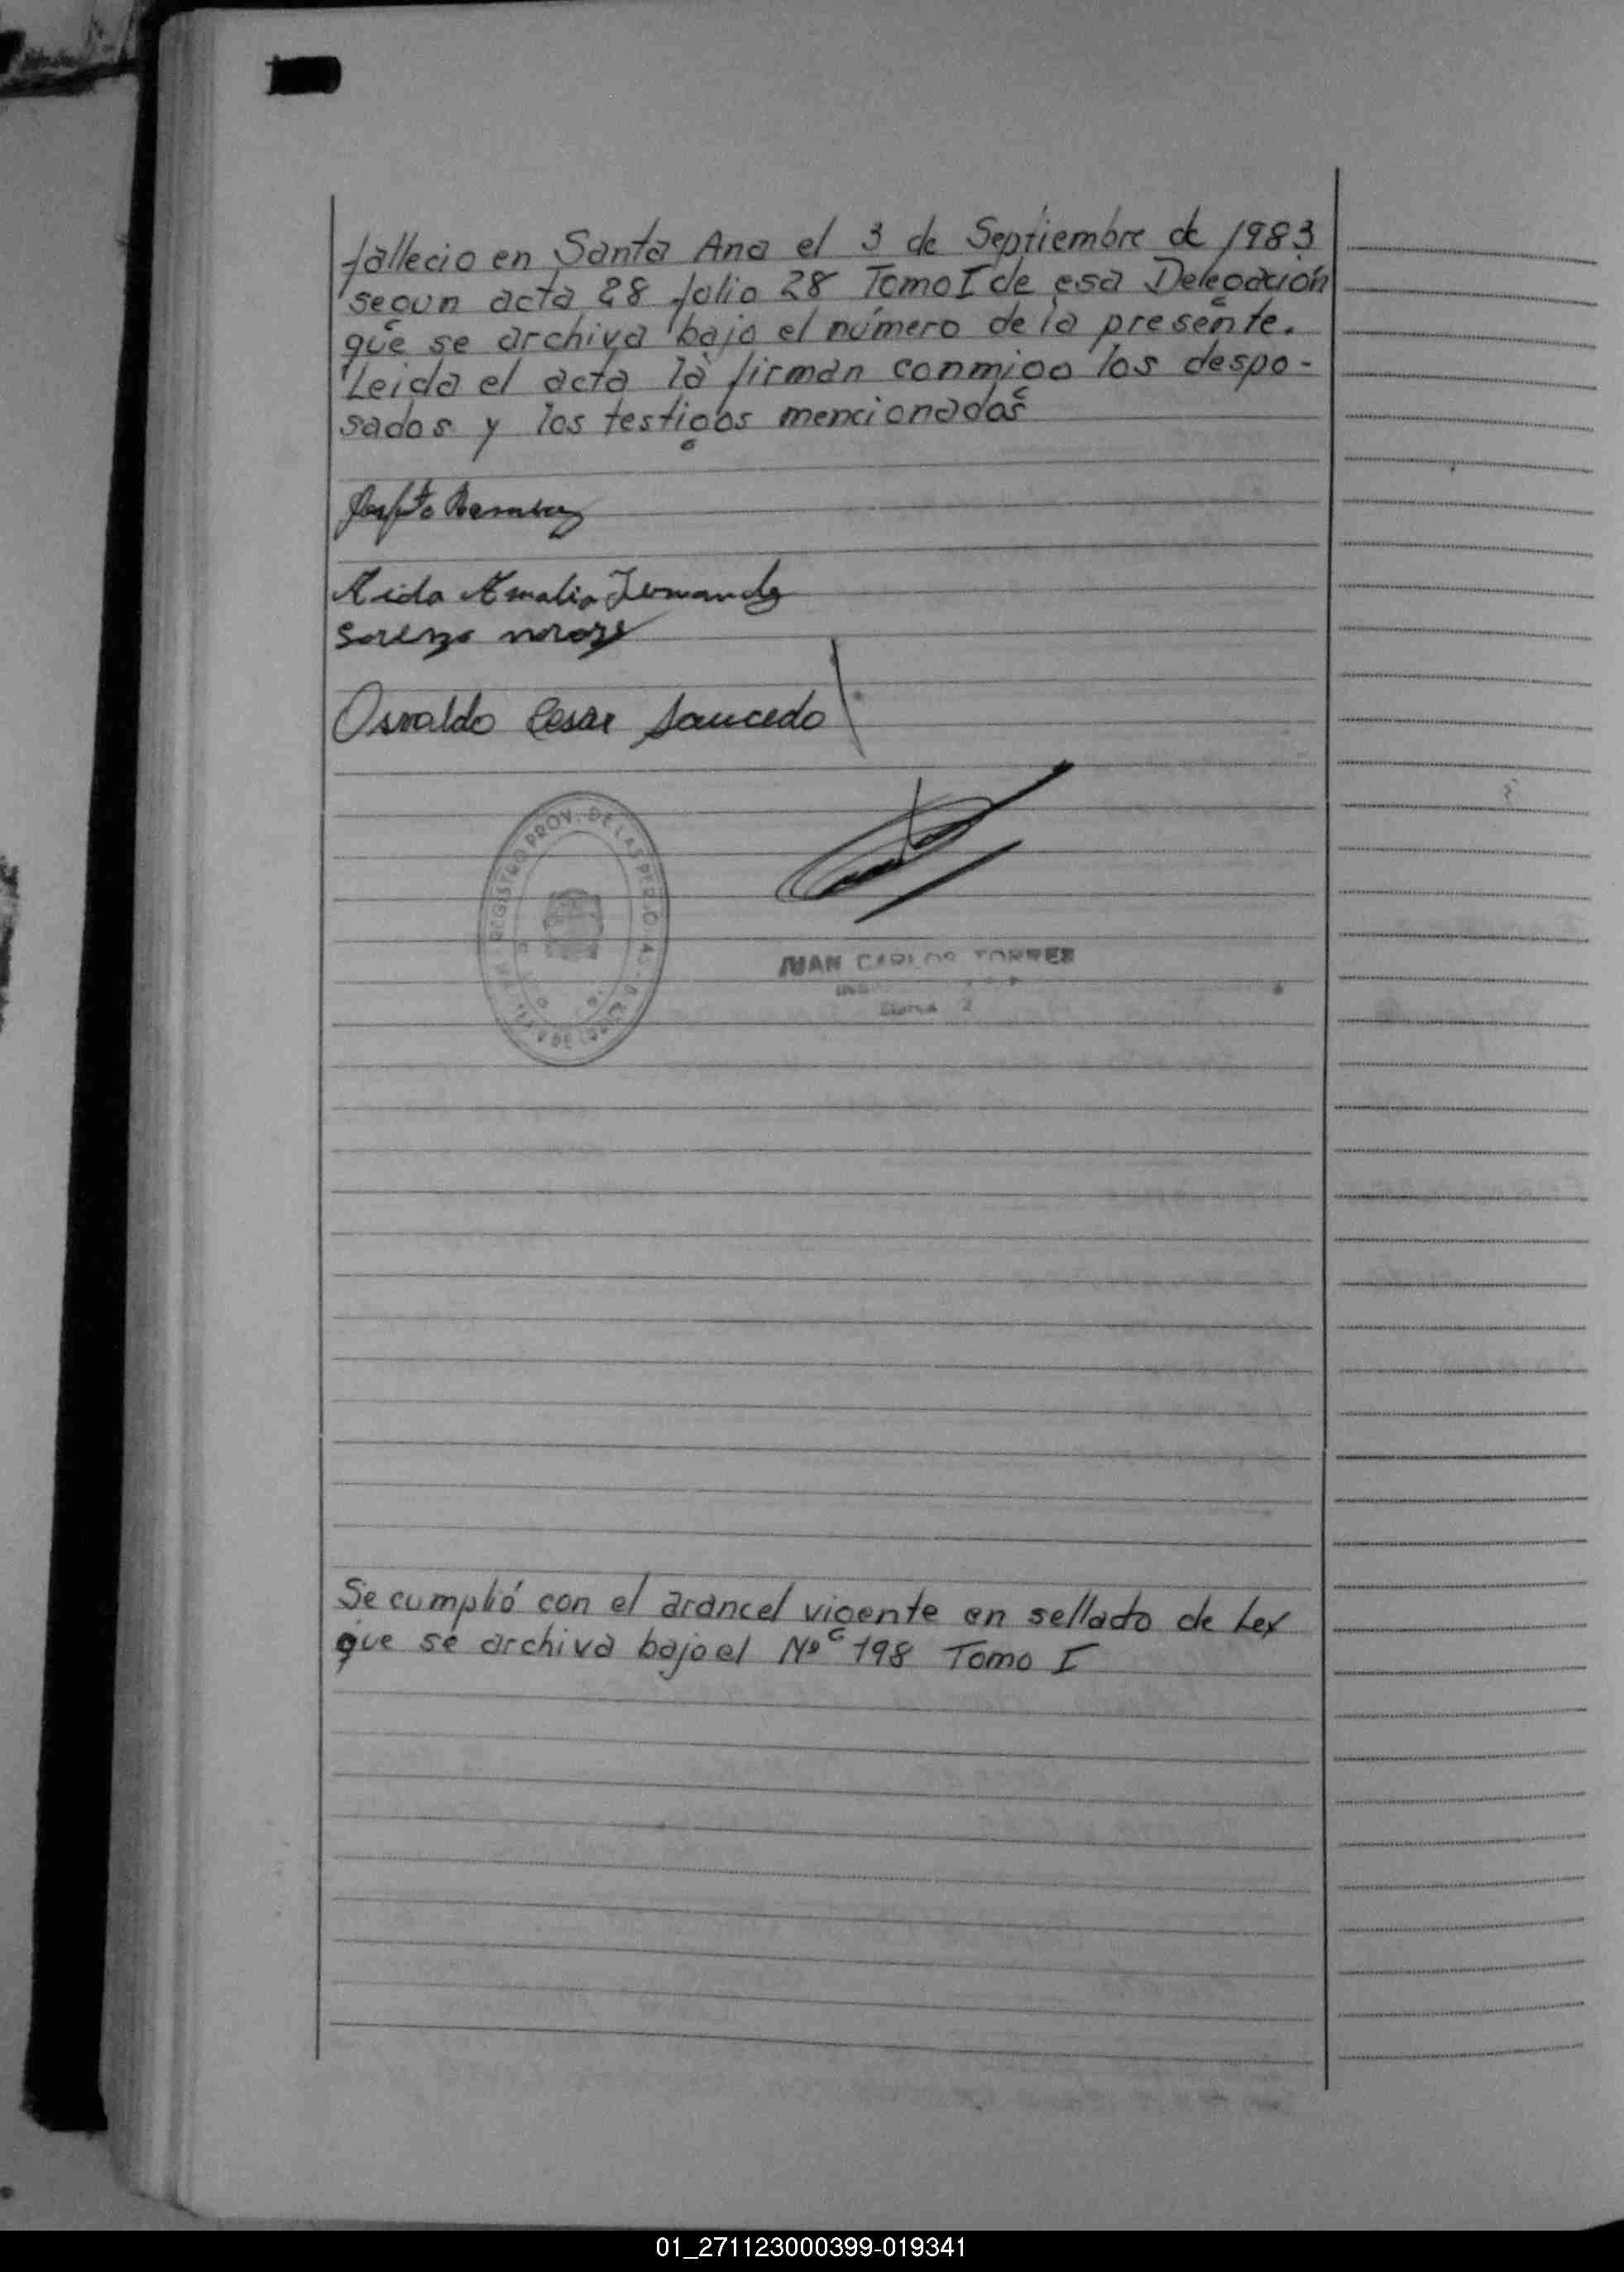 fallecio en Santa Ana el 3 de Septiembre de 1983
segun acta 28 folio 28 Tomo I de esa Delegación
que se archiva bajo el número de la presente.
Leida el acta la firman conmigo los despo-
sados y los testigos mencionados
Aida Amalia Fernandez
Osvaldo Cesar Saucedo
REGISTRO PROV. DE LAS PER
JUAN CARLOS TORRES
Se cumplió con el arancel vigente en sellado de Ley
que se archiva bajo el Nº 198 Tomo I
01_271123000399-019341